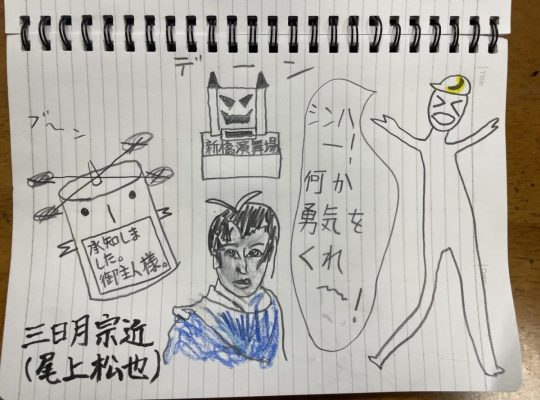 デーン
ブーン
新橋演舞場
シンハ
ー!
何か
勇気を
くれ
〜!
承知しま
した。
御主人様。
三日月宗近
(尾上松也)